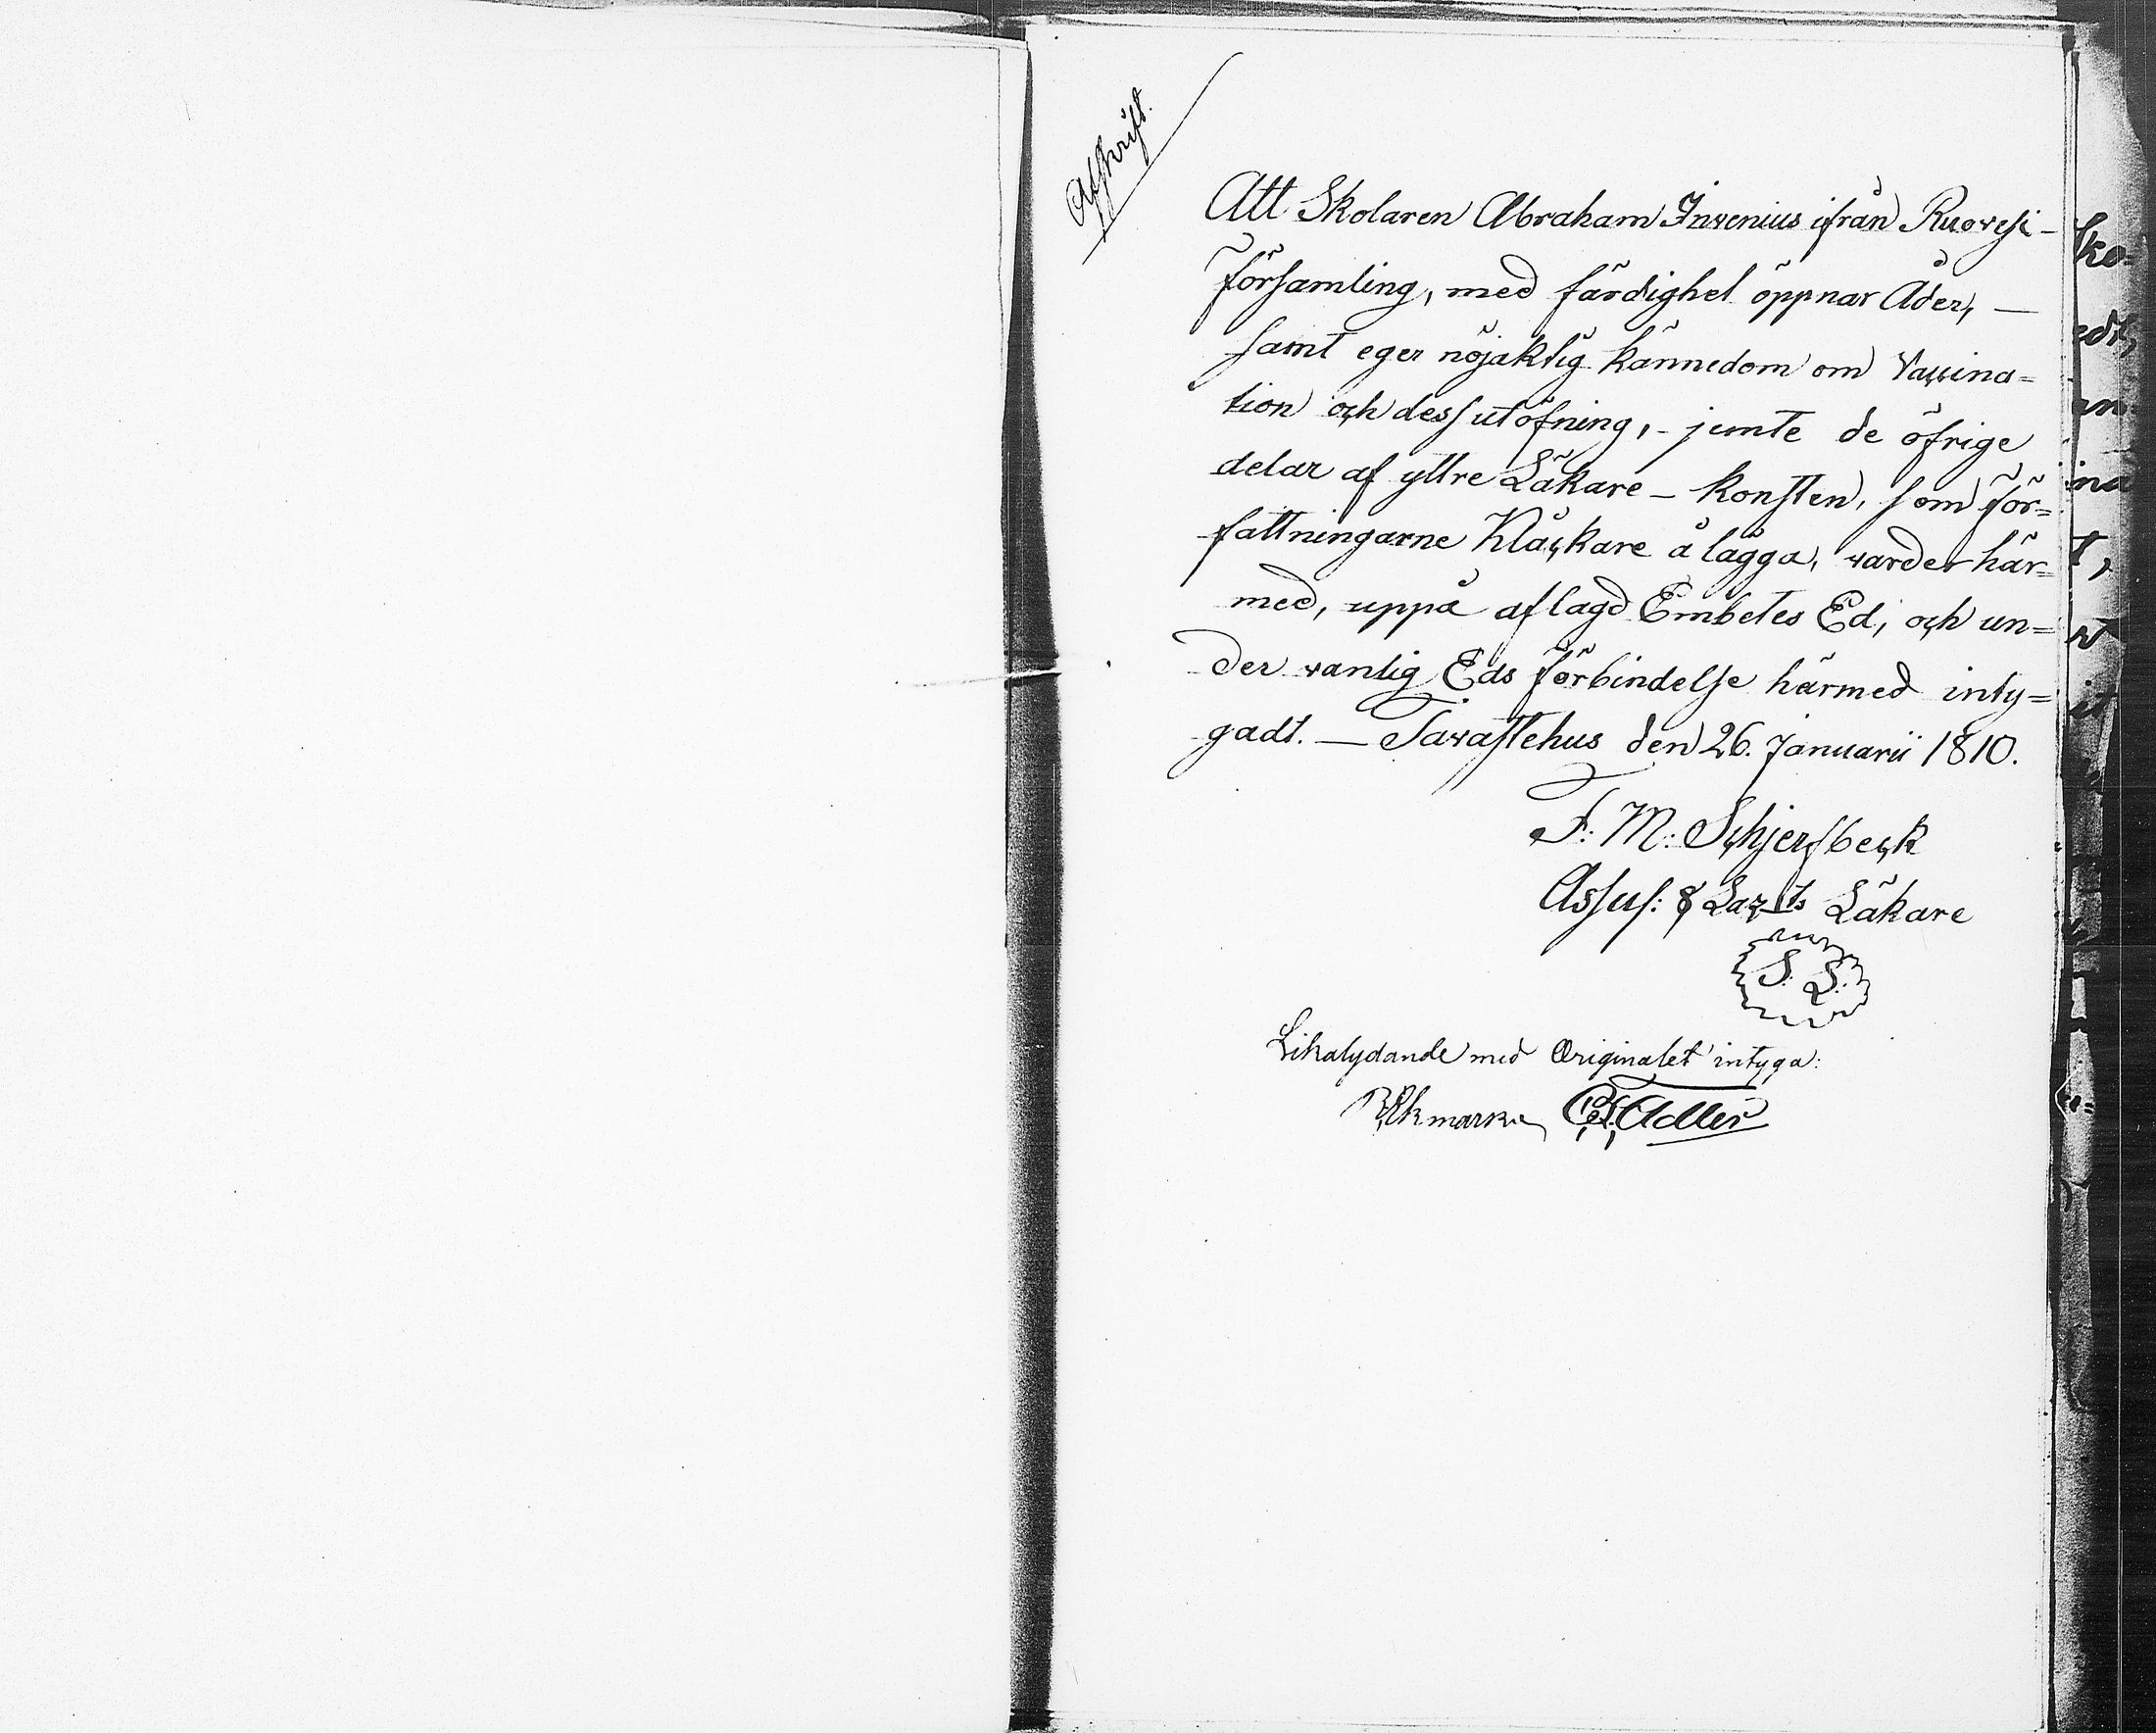 Afskrift.
Att Skolaren Abraham Invenius ifrån Ruovesi-
församling, med färdighet öppnar Åder, —
samt eger nöjaktig kännedom om Vaccina=
tion och dess utöfning, - jemte de öfrige
delar af yttre Läkare - konsten, som för=
fattningarne Kläckare å lägga, varder här=
med, uppå aflagd Embetes Ed, och un=
der vanlig Eds förbindelse härmed inty=
gadt. — Tavastehus den 26. Januarii 1810.
F: M: Schjerfbeck
Assess: & Laz_ts Läkare
S. S.
Likalydande med Originalet intyga:
Adler
sko=